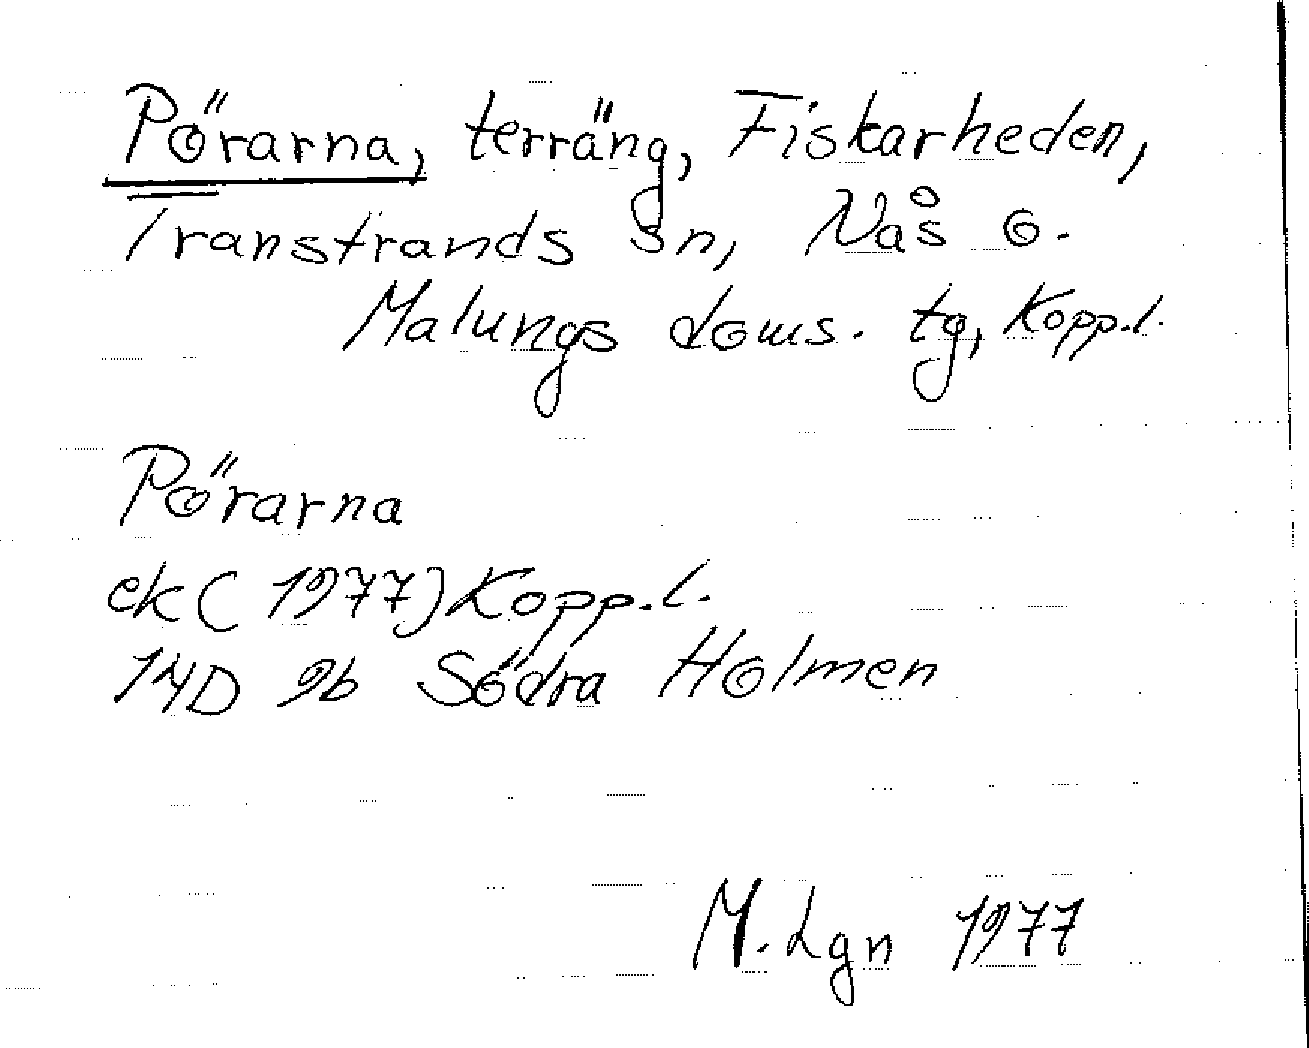 Pörarna, terräng, Fiskarheden,
Transtrands sn, Nås o.
Malungs doms. tg, Kopp.l.
Pörarna
ek (1977) Kopp.l.
14D 9b Södra Holmen
M. Lgn 1977